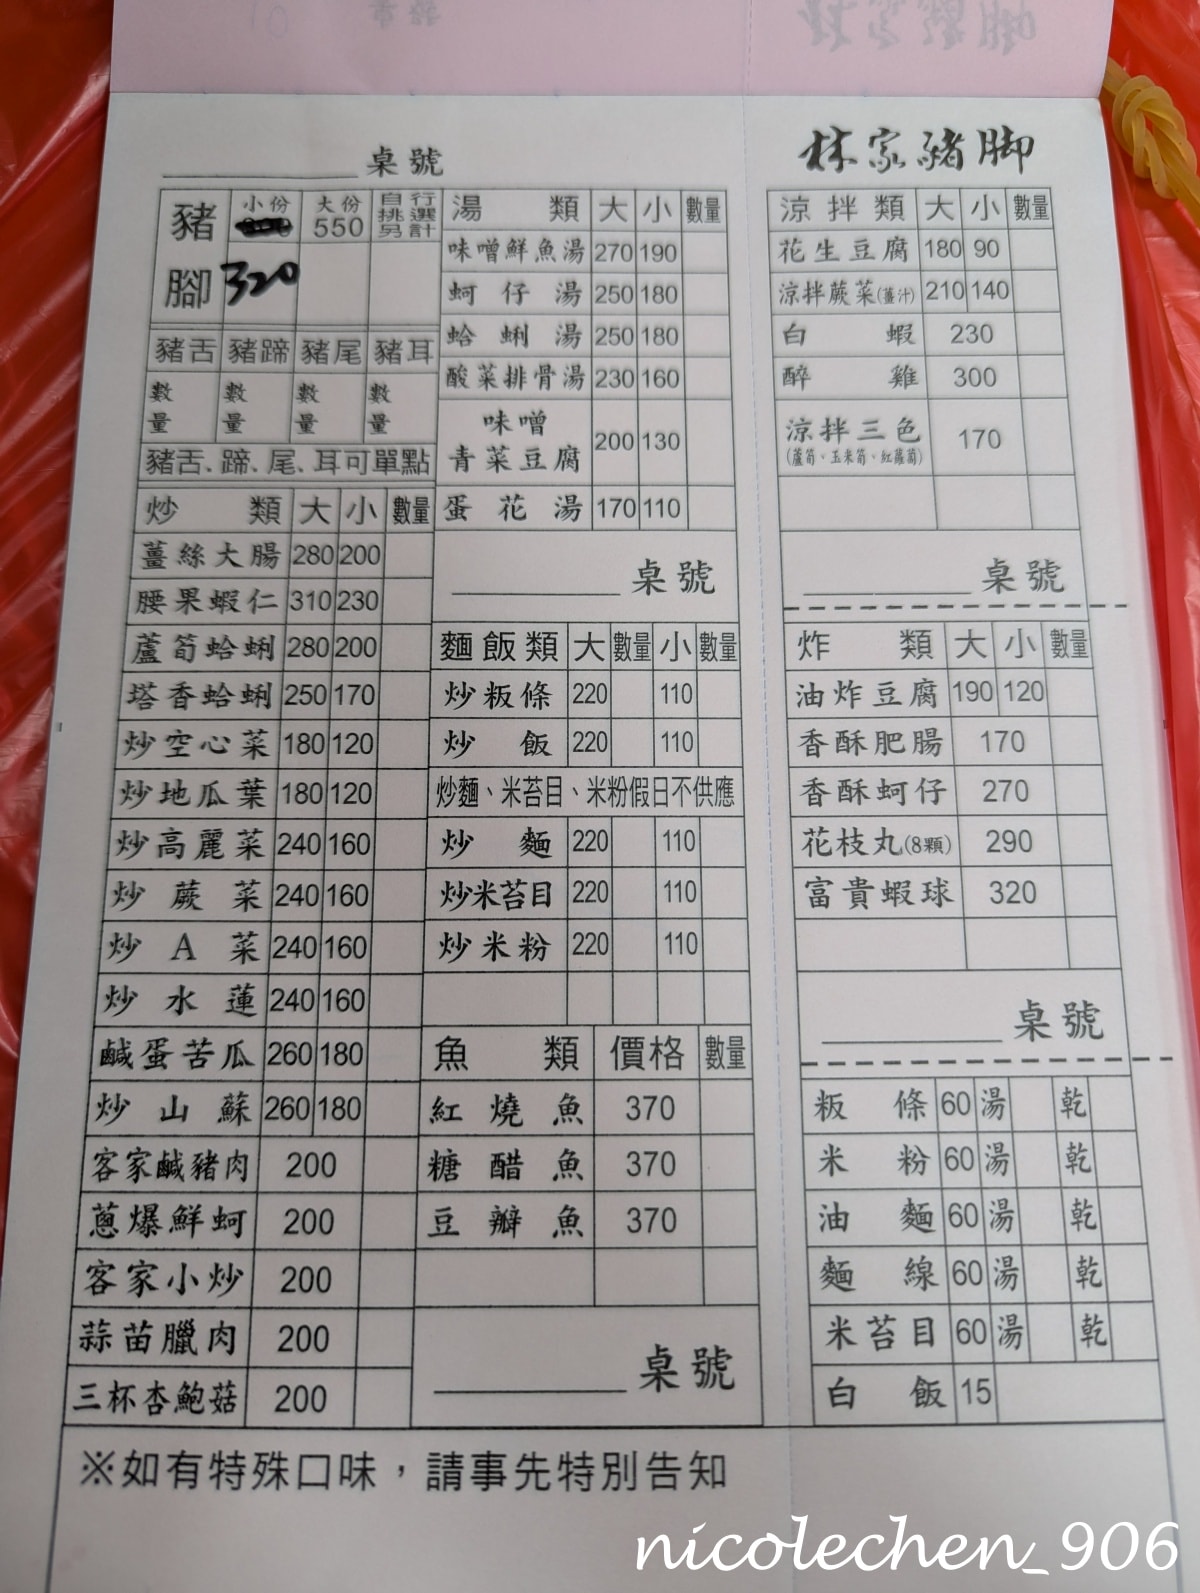 林家豬腳
桌號
豬腳 小份 大份 550 自行挑選另計
320
豬舌 豬蹄 豬尾 豬耳
數量 數量 數量 數量
豬舌、蹄、尾、耳可單點
炒類 大 小 數量
薑絲大腸 280 200
腰果蝦仁 310 230
蘆筍蛤蜊 280 200
塔香蛤蜊 250 170
炒空心菜 180 120
炒地瓜葉 180 120
炒高麗菜 240 160
炒蕨菜 240 160
炒A菜 240 160
炒水蓮 240 160
鹹蛋苦瓜 260 180
炒山蘇 260 180
客家鹹豬肉 200
蔥爆鮮蚵 200
客家小炒 200
蒜苗臘肉 200
三杯杏鮑菇 200
湯類 大 小 數量
味噌鮮魚湯 270 190
蚵仔湯 250 180
蛤蜊湯 250 180
酸菜排骨湯 230 160
味噌
青菜豆腐 200 130
蛋花湯 170 110
桌號
麵飯類 大 數量 小 數量
炒粄條 220 110
炒飯 220 110
炒麵、米苔目、米粉假日不供應
炒麵 220 110
炒米苔目 220 110
炒米粉 220 110
魚類 價格 數量
紅燒魚 370
糖醋魚 370
豆瓣魚 370
桌號
涼拌類 大 小 數量
花生豆腐 180 90
涼拌蕨菜(薑汁) 210 140
白蝦 230
醉雞 300
涼拌三色 170
(蘆筍、玉米筍、紅蘿蔔)
桌號
炸類 大 小 數量
油炸豆腐 190 120
香酥肥腸 170
香酥蚵仔 270
花枝丸(8顆) 290
富貴蝦球 320
桌號
粄條 60 湯 乾
米粉 60 湯 乾
油麵 60 湯 乾
麵線 60 湯 乾
米苔目 60 湯 乾
白飯 15
※如有特殊口味，請事先特別告知
nicolechen_906